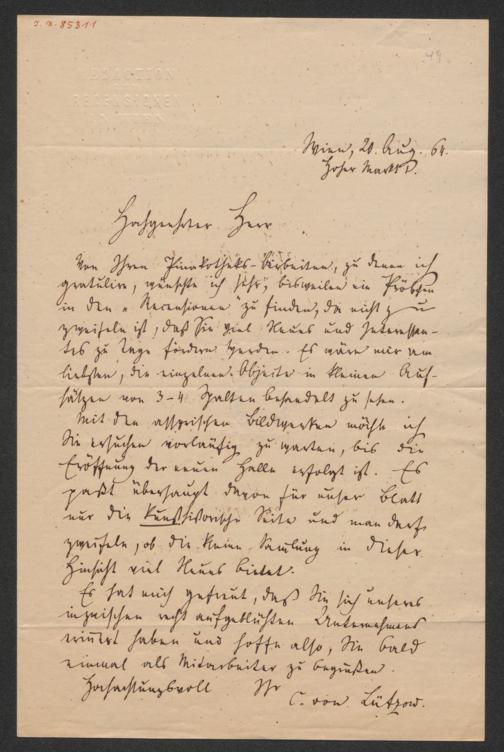 J. N. 85311
49.
REDACTION
RECENSIONEN
WIEN
Wien, 20. Aug. 64.
Hoher Markt 1.
Hochgeehrter Herr
Von Ihren Pinakotheks-Arbeiten, zu denen ich
gratulire, wünschte ich sehr, bisweilen ein Pröbchen
in den „Recensionen“ zu finden, da nicht zu
zweifeln ist, daß Sie viel Neues und Interessan-
tes zu Tage fördern werden. Es wäre mir am
liebsten, die einzelnen Objecte in kleinen Auf-
sätzen von 3-4 Spalten behandelt zu sehen.
Mit den assyrischen Bildwerken möchte ich
Sie ersuchen vorläufig zu warten, bis die
Eröffnung der neuen Halle erfolgt ist. Es
paßt überhaupt davon für unser Blatt
nur die kunsthistorische Seite und man darf
zweifeln, ob die kleine Samlung in dieser
Hinsicht viel Neues bietet.
Es hat mich gefreut, daß Sie sich unseres
inzwischen recht aufgeblühten Unternehmens
erinnert haben und hoffe also, Sie bald
einmal als Mitarbeiter zu begrüßen.
Hochachtungsvoll Ihr
C. von Lützow.